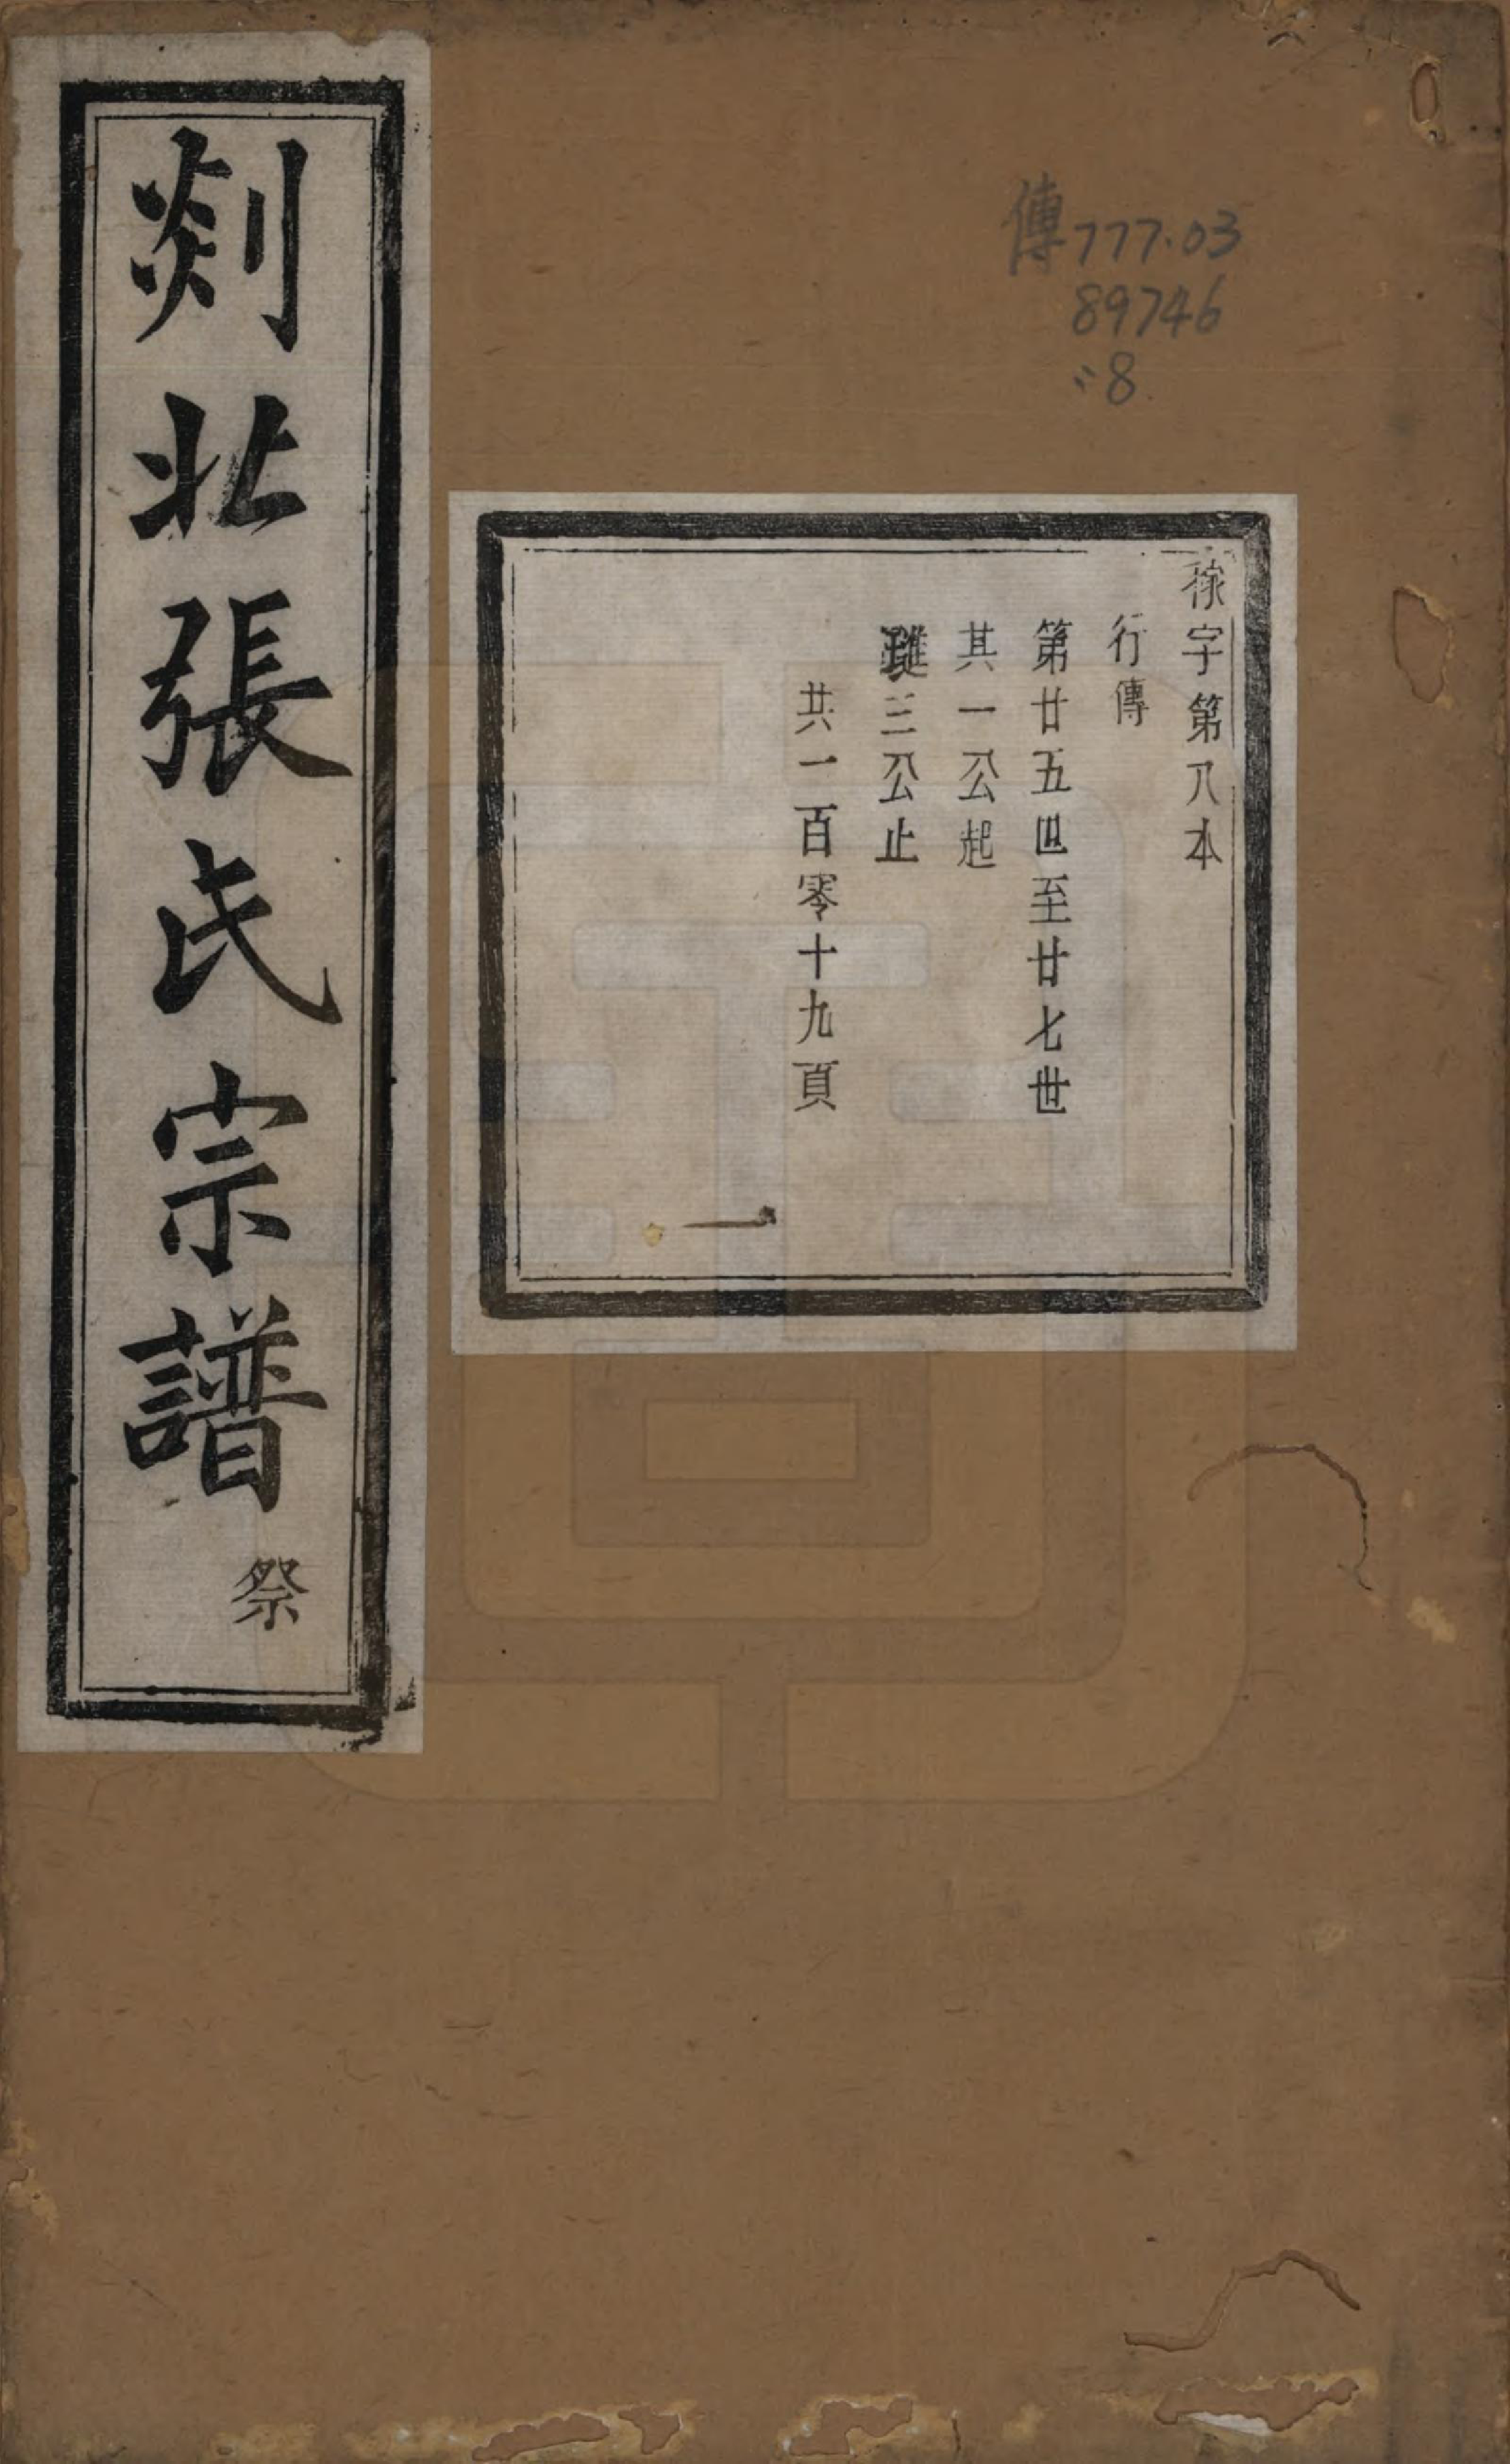 傳777.03
89746
:8
稼字第八本
行傳
第廿五世至廿七世
其一公起
三公止
共一百零十九頁
剡北張氏宗譜
祭